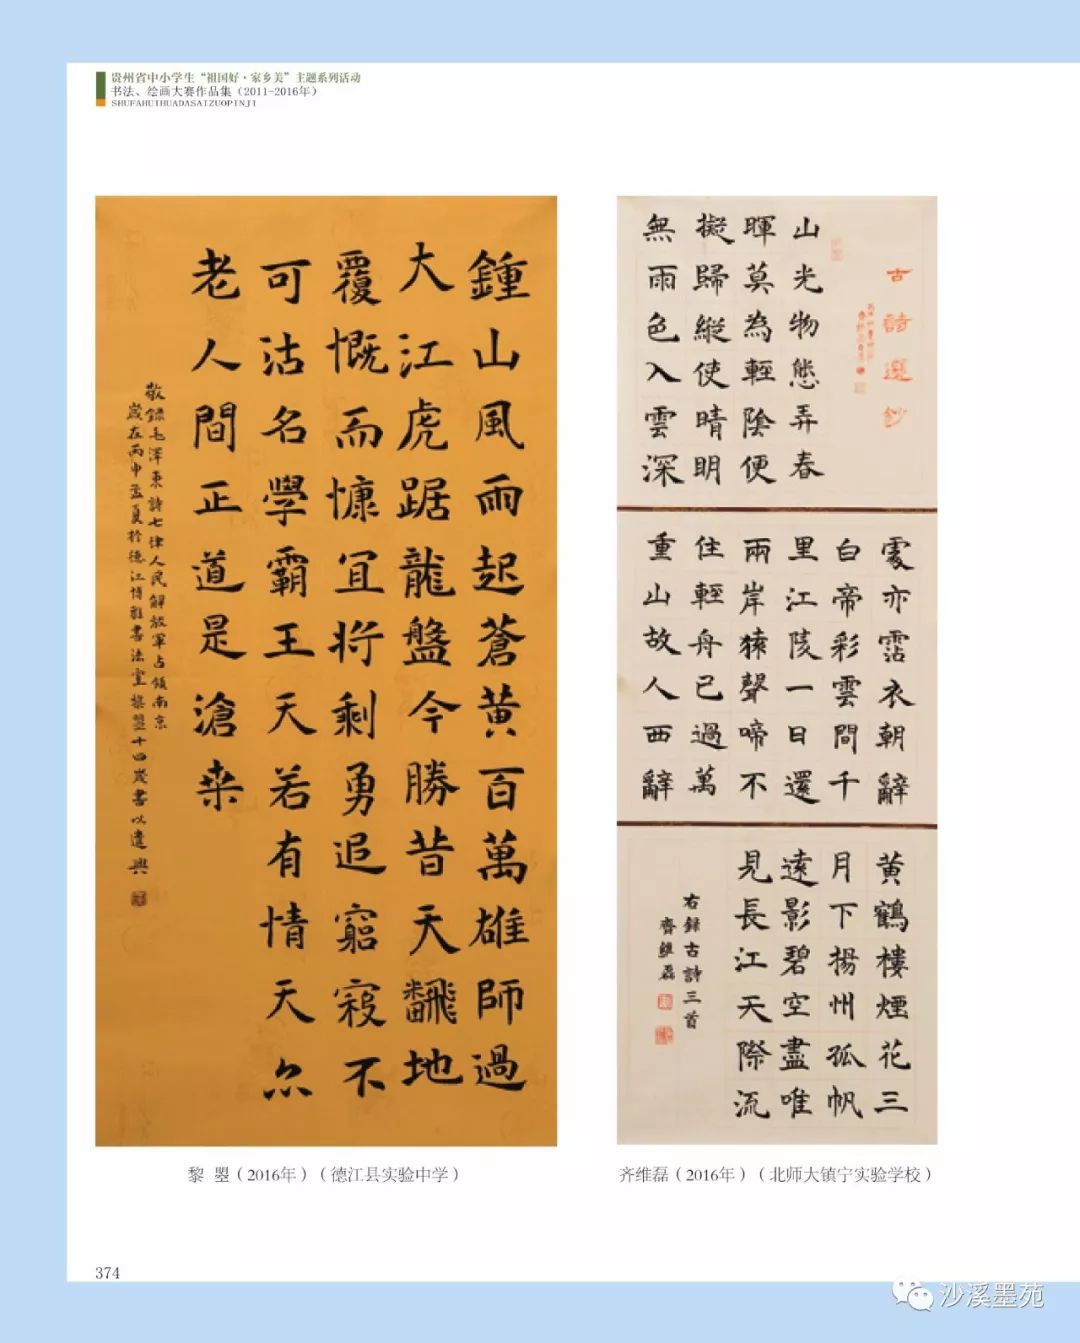 贵州省中小学生“祖国好·家乡美”主题系列活动
书法、绘画大赛作品集（2011-2016年）
SHUFAHUIHUADASAIZUOPINJI
鍾山風雨起蒼黃百萬雄師過
大江虎踞龍盤今勝昔天翻地
覆慨而慷宜將剩勇追窮寇不
可沽名學霸王天若有情天亦
老人間正道是滄桒
敬錄毛澤東詩七律人民解放軍占領南京
歲在丙申孟夏於德江博雅書法室黎曌十四歲書以遣興
古詩選鈔
山光物態弄春
暉莫為輕陰便
擬歸縱使晴明
無雨色入雲深
處亦霑衣朝辭
白帝彩雲間千
里江陵一日還
兩岸猿聲啼不
住輕舟已過萬
重山故人西辭
黃鶴樓煙花三
月下揚州孤帆
遠影碧空盡唯
見長江天際流
右錄古詩三首
齊維磊
黎 曌（2016年）（德江县实验中学）
齐维磊（2016年）（北师大镇宁实验学校）
374
沙溪墨苑